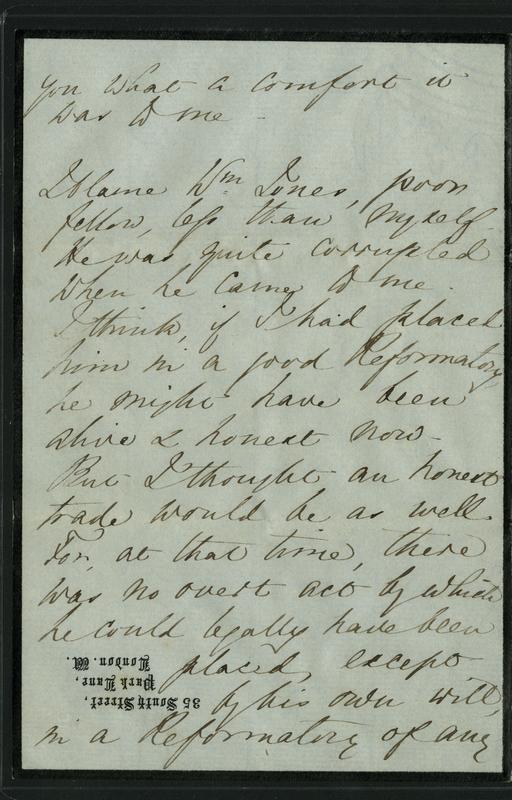 you what a comfort it
was to me -
I blame Wm Jones, poor
fellow, less than myself.
He was quite corrupted
when he came to me.
I think, if I had placed
him in a good Reformatory,
he might have been
alive & honest now -
But I thought an honest
trade would be as well.
For, at that time, there
was no overt act by which
he could legally have been
placed, except
by his own will,
in a Reformatory of any
35 South Street,
Park Lane,
London. W.